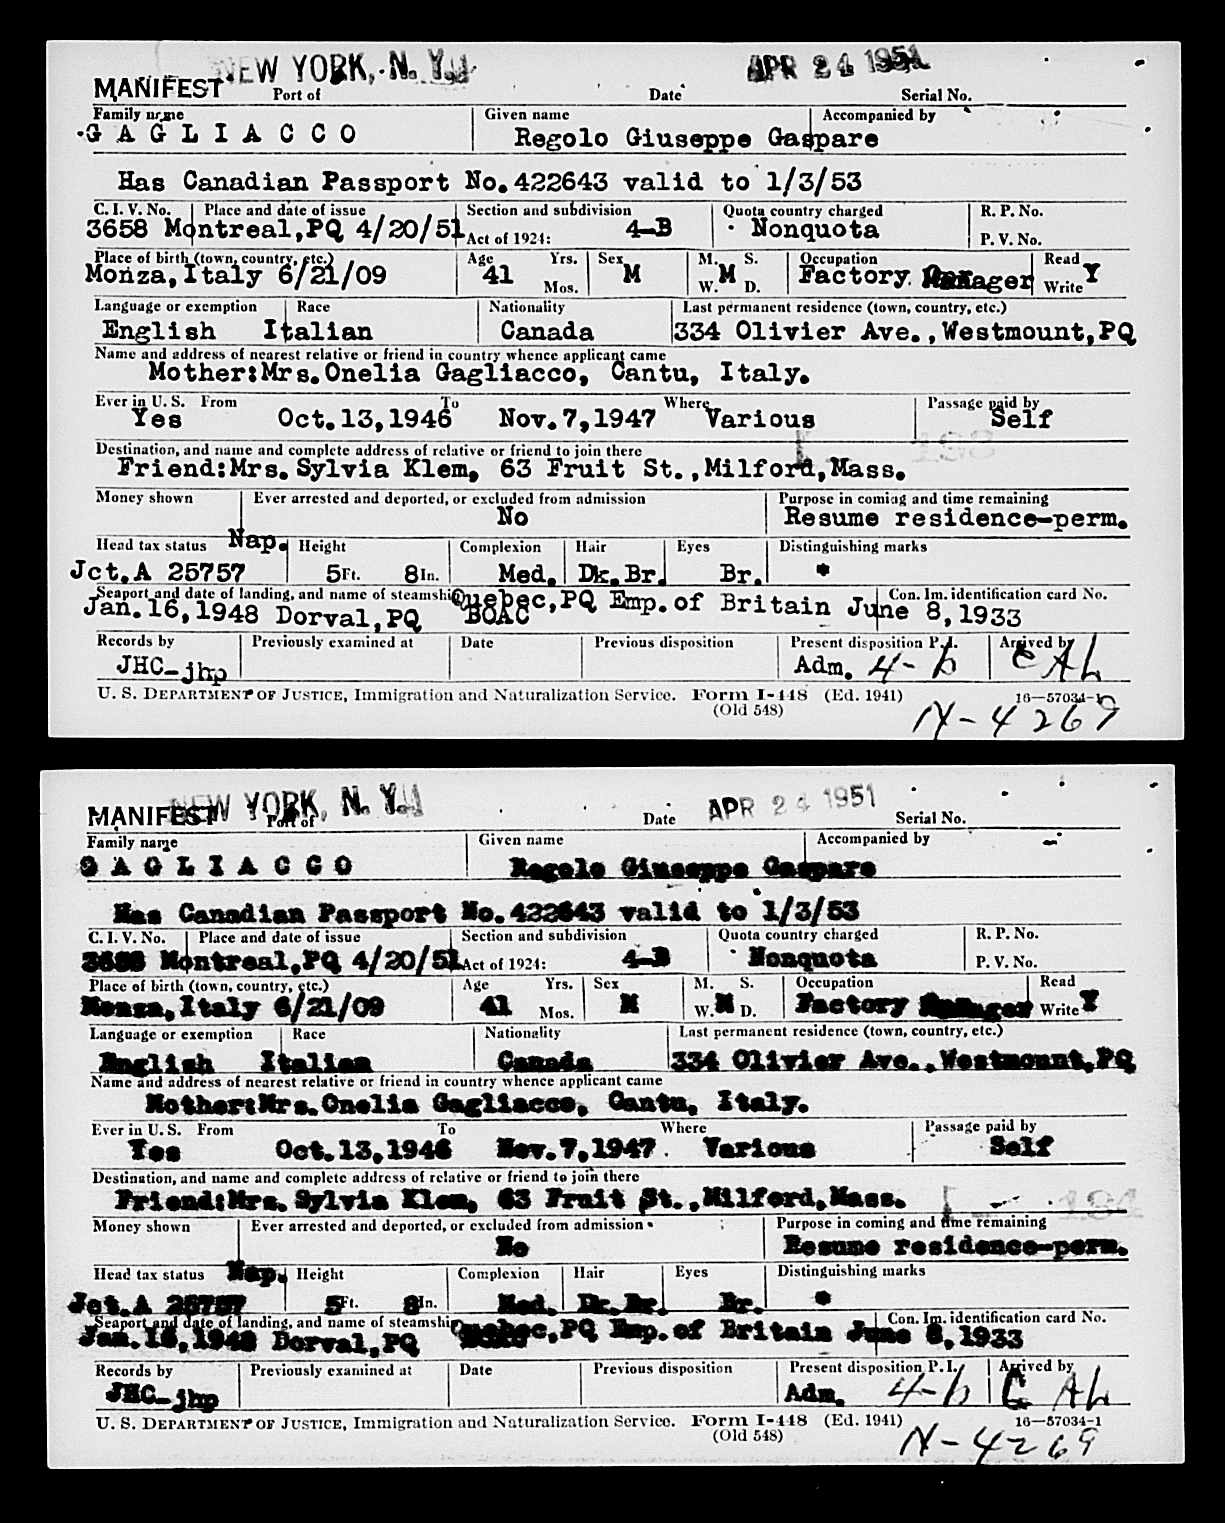 NEW YORK, N. Y. APR 24 1951
MANIFEST Port of Date Serial No.
Family name Given name Accompanied by
G A G L I A C C O Regolo Giuseppe Gaspare
Has Canadian Passport No. 422643 valid to 1/3/53
C. I. V. No. Place and date of issue Section and subdivision Quota country charged R. P. No.
3658 Montreal,PQ 4/20/51 Act of 1924: 4-B Nonquota P. V. No.
Place of birth (town, country, etc.) Age Yrs. Sex M. S. Occupation Read
Monza,Italy 6/21/09 41 Mos. M W. M D. Factory Manager Write Y
Language or exemption Race Nationality Last permanent residence (town, country, etc.)
English Italian Canada 334 Olivier Ave.,Westmount,PQ
Name and address of nearest relative or friend in country whence applicant came
Mother:Mrs.Onelia Gagliacco, Cantu, Italy.
Ever in U. S. From To Where Passage paid by
Yes Oct.13,1946 Nov.7,1947 Various Self
Destination, and name and complete address of relative or friend to join there
Friend:Mrs.Sylvia Klem, 63 Fruit St.,Milford,Mass.
Money shown Ever arrested and deported, or excluded from admission Purpose in coming and time remaining
No Resume residence-perm.
Head tax status Nap. Height Complexion Hair Eyes Distinguishing marks
Jct.A 25757 5 Ft. 8 In. Med. Dk.Br. Br. *
Seaport and date of landing, and name of steamship Quebec,PQ Emp.of Britain June 8,1933 Con. Im. identification card No.
Jan.16,1948 Dorval,PQ BOAC
Records by Previously examined at Date Previous disposition Present disposition P. I. Arrived by
JHC-jhp Adm. 4-b C AL
U. S. DEPARTMENT OF JUSTICE, Immigration and Naturalization Service. Form I-448 (Ed. 1941) 16—57034-1
(Old 548) N-4269
NEW YORK, N. Y. APR 24 1951
MANIFEST Port of Date Serial No.
Family name Given name Accompanied by
G A G L I A C C O Regolo Giuseppe Gaspare
Has Canadian Passport No. 422643 valid to 1/3/53
C. I. V. No. Place and date of issue Section and subdivision Quota country charged R. P. No.
3658 Montreal,PQ 4/20/51 Act of 1924: 4-B Nonquota P. V. No.
Place of birth (town, country, etc.) Age Yrs. Sex M. S. Occupation Read
Monza,Italy 6/21/09 41 Mos. M W. M D. Factory Manager Write Y
Language or exemption Race Nationality Last permanent residence (town, country, etc.)
English Italian Canada 334 Olivier Ave.,Westmount,PQ
Name and address of nearest relative or friend in country whence applicant came
Mother:Mrs.Onelia Gagliacco, Cantu, Italy.
Ever in U. S. From To Where Passage paid by
Yes Oct.13,1946 Nov.7,1947 Various Self
Destination, and name and complete address of relative or friend to join there
Friend:Mrs.Sylvia Klem, 63 Fruit St.,Milford,Mass.
Money shown Ever arrested and deported, or excluded from admission Purpose in coming and time remaining
No Resume residence-perm.
Head tax status Nap. Height Complexion Hair Eyes Distinguishing marks
Jct.A 25757 5 Ft. 8 In. Med. Dk.Br. Br. *
Seaport and date of landing, and name of steamship Quebec,PQ Emp.of Britain June 8,1933 Con. Im. identification card No.
Jan.16,1948 Dorval,PQ BOAC
Records by Previously examined at Date Previous disposition Present disposition P. I. Arrived by
JHC-jhp Adm. 4-b C AL
U. S. DEPARTMENT OF JUSTICE, Immigration and Naturalization Service. Form I-448 (Ed. 1941) 16—57034-1
(Old 548) N-4269